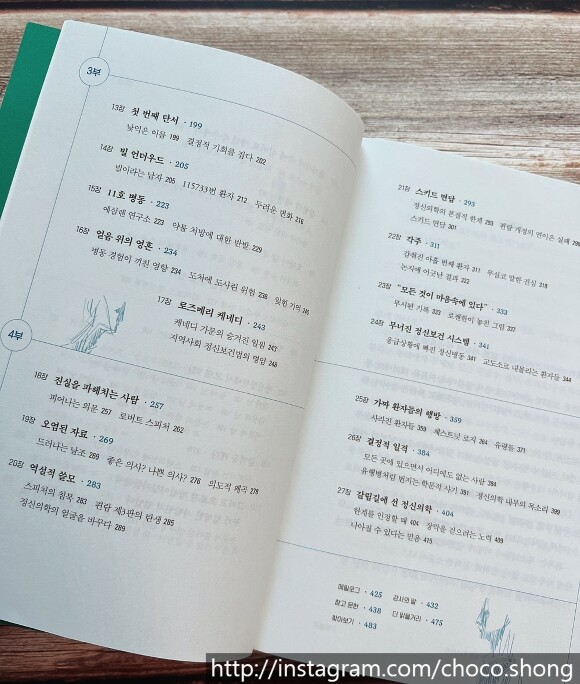 3부
13장 첫 번째 단서 · 199
낯익은 이름 199 결정적 기회를 잡다 202
14장 빌 언더우드 · 205
빌이라는 남자 205 115733번 환자 212 두려운 변화 216
15장 11호 병동 · 223
에설렌 연구소 223 약물 처방에 대한 반발 229
16장 얼음 위의 영혼 · 234
병동 경험이 끼친 영향 234 도처에 도사린 위험 238 잊힌 기억
17장 로즈메리 케네디 · 243
케네디 가문의 숨겨진 일원 247
지역사회 정신보건법의 명암 248
4부
18장 진실을 파헤치는 사람 · 257
피어나는 의문 257 로버트 스피처 262
19장 오염된 자료 · 269
드러나는 날조 269 좋은 의사? 나쁜 의사? 276 의도적 왜곡 278
20장 역설적 쓸모 · 283
스피처의 침묵 283 편람 제3판의 탄생 285
정신의학의 얼굴을 바꾸다 289
21장 스키드 면담 · 293
정신의학의 본질적 한계 293 편람 개정의 연이은 실패
스키드 면담 301
22장 각주 · 311
감춰진 아홉 번째 환자 311 무심코 말한 진심 318
논지에 어긋난 결과 322
23장 “모든 것이 마음속에 있다” · 333
무시된 기록 333 로젠한이 놓친 그림 337
24장 무너진 정신보건 시스템 · 341
응급상황에 빠진 정신병동 341 교도소로 내몰리는 환자들 344
25장 가짜 환자들의 행방 · 359
사라진 환자들 359 체스트넛 로지 364 유령들 371
26장 결정적 일격 · 384
모든 곳에 있으면서 아디에도 없는 사람 384
유행병처럼 번지는 학문적 사기 391 정신의학 내부의 목소리 399
27장 갈림길에 선 정신의학 · 404
한계를 인정할 때 404 장막을 걷으려는 노력 409
나아질 수 있다는 믿음 415
에필로그 · 425 감사의 말 · 432
참고 문헌 · 438 더 읽을거리 · 475
찾아보기 · 483
http://instagram.com/choco.shong